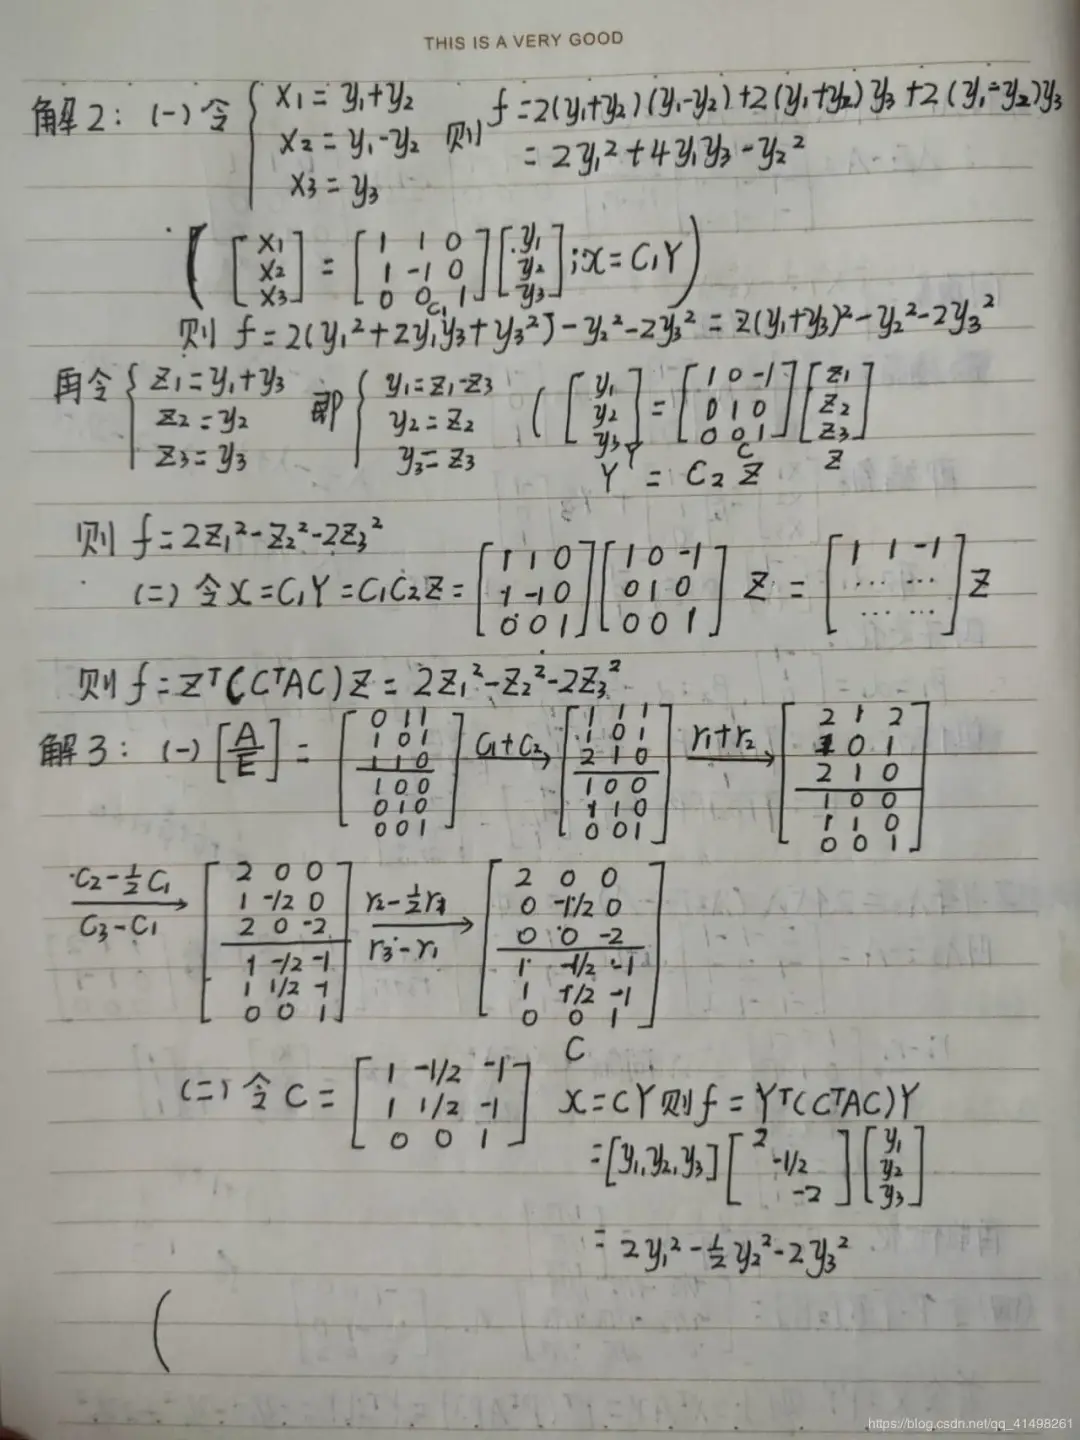 THIS IS A VERY GOOD
解2: (一) 令 { x1 = y1+y2  x2 = y1-y2  x3 = y3  则 f = 2(y1+y2)(y1-y2)+2(y1+y2)y3+2(y1-y2)y3
= 2y1²+4y1y3-y2²
( [x1 x2 x3] = [1 1 0; 1 -1 0; 0 0 1] [y1 y2 y3] ; x = C1Y )
C1
则 f = 2(y1²+2y1y3+y3²)-y2²-2y3² = 2(y1+y3)²-y2²-2y3²
再令 { z1=y1+y3  z2=y2  z3=y3  即 { y1=z1-z3  y2=z2  y3=z3  ( [y1 y2 y3] = [1 0 -1; 0 1 0; 0 0 1] [z1 z2 z3]
C
Z
Y = C2 Z
则 f = 2z1²-z2²-2z3²
(二) 令 X = C1Y = C1C2Z = [1 1 0; 1 -1 0; 0 0 1] [1 0 -1; 0 1 0; 0 0 1] Z = [1 1 -1; ... ...; ... ...] Z
则 f = Zᵀ(CᵀAC)Z = 2z1²-z2²-2z3²
解3: (一) [A/E] = [0 1 1; 1 0 1; 1 1 0; 1 0 0; 0 1 0; 0 0 1] C1+C2→ [1 1 1; 1 0 1; 2 1 0; 1 0 0; 1 1 0; 0 0 1] r1+r2→ [2 1 2; 1 0 1; 2 1 0; 1 0 0; 1 1 0; 0 0 1]
C2-½C1 C3-C1→ [2 0 0; 1 -1/2 0; 2 0 -2; 1 -1/2 -1; 1 1/2 -1; 0 0 1] r2-½r1 r3-r1→ [2 0 0; 0 -1/2 0; 0 0 -2; 1 -1/2 -1; 1 1/2 -1; 0 0 1]
C
(二) 令 C = [1 -1/2 -1; 1 1/2 -1; 0 0 1]  X = CY 则 f = Yᵀ(CᵀAC)Y
= [y1, y2, y3] [2 -1/2 -2] [y1 y2 y3]
= 2y1²-½y2²-2y3²
(
https://blog.csdn.net/qq_41498261